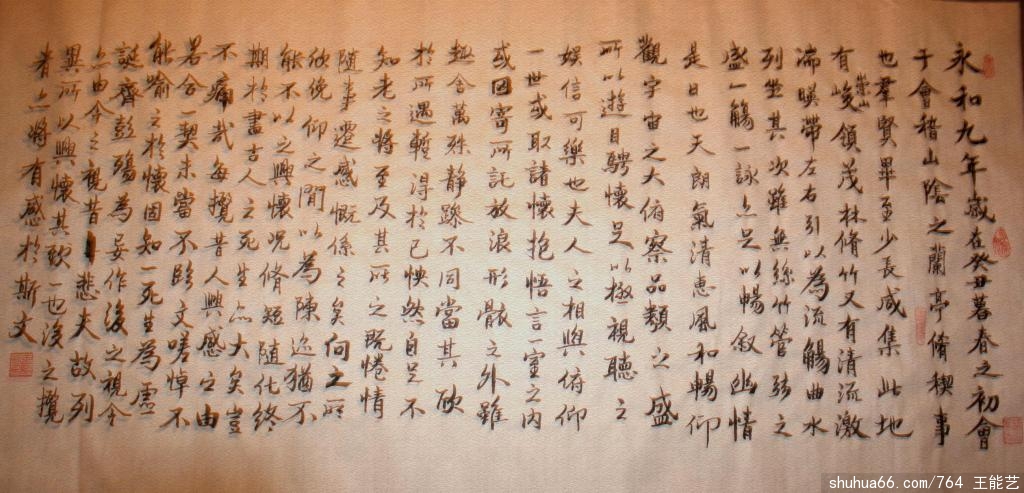 永和九年歲在癸丑暮春之初會
于會稽山陰之蘭亭脩稧事
也羣賢畢至少長咸集此地
有崇山峻領茂林脩竹又有清流激
湍暎帶左右引以為流觴曲水
列坐其次雖無絲竹管弦之
盛一觴一詠亦足以暢叙幽情
是日也天朗氣清惠風和暢仰
觀宇宙之大俯察品類之盛
所以遊目騁懷足以極視聽之
娛信可樂也夫人之相與俯仰
一世或取諸懷抱悟言一室之內
或因寄所託放浪形骸之外雖
趣舍萬殊静躁不同當其欣
於所遇蹔得於己怏然自足不
知老之將至及其所之既惓情
隨事遷感慨係之矣向之所
欣俛仰之間以為陳迹猶不
能不以之興懷況脩短隨化終
期於盡古人云死生亦大矣豈
不痛哉每攬昔人興感之由
若合一契未嘗不臨文嗟悼不
能喻之於懷固知一死生為虛
誕齊彭殤為妄作後之視今
亦由今之視昔悲夫故列
異所以興懷其致一也後之攬
者亦將有感於斯文
shuhua66.com/764 王能艺